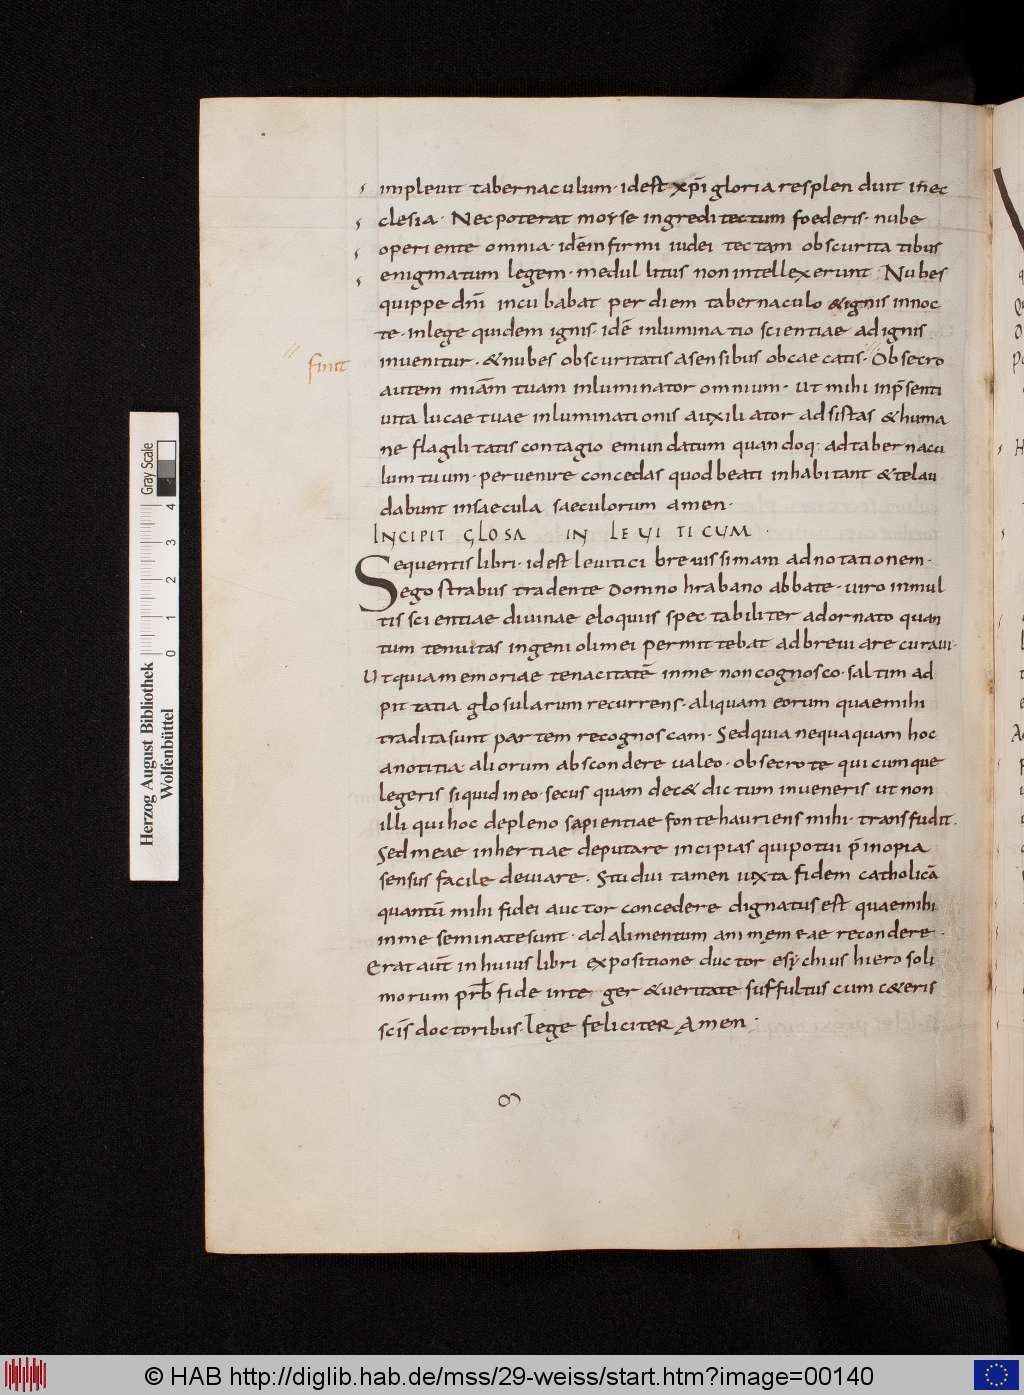 implevit tabernaculum · id est xp̄i gloria resplenduit in ec
clesia · Nec poterat moyse ingredi tectum foederis · nube
operiente omnia · idē infirmi iudei tectam obscuritatibus
enigmatum legem · medullitus non intellexerunt · Nubes
quippe dn̄i incubabat per diem tabernaculo & ignis in noc
te · in lege quidem ignis · idē inluminatio scientiae ad ignis
finit
invenitur · & nubes obscuritatis a sensibus obcaecatis · Obsecro
autem miām tuam inluminator omnium · ut mihi in p̄senti
vita lucae tuae inluminationis auxiliator adsistas & huma
ne flagilitatis contagio emundatum quandoq· ad tabernacu
lum tuum · pervenire concedas quod beati inhabitant & te lau
dabunt in saecula saeculorum amen ·
INCIPIT GLOSA IN LEVITICUM ·
Sequentis libri · id est levitici brevissimam adnotationem ·
ego strabus tradente domno hrabano abbate · viro in mul
tis scientiae divinae eloquiis spectabiliter adornato quan
tum tenuitas ingenioli mei permittebat adbreviare curavi ·
Ut quia memoriae tenacitatē in me non cognosco · saltim ad
pittatia glosularum recurrens · aliquam eorum quae mihi
tradita sunt partem recognoscam · Sed quia nequaquam hoc
a notitia aliorum abscondere valeo · obsecro te quicumque
legeris si quid in eo · secus quam dec& dictum inveneris ut non
illi qui hoc de pleno sapientiae fonte hauriens mihi · transfudit ·
Sed meae inhertiae deputare incipias qui potui p̄ inopia
sensus facile deviare · Studui tamen iuxta fidem catholicā
quantū mihi fidei auctor concedere dignatus est quae mihi
in me seminate sunt · ad alimentum anime meae recondere ·
Erat aūt in huius libri expositione ductor esychius hierosoli
morum prb̄ fide integer & veritate suffultus cum c&eris
scīs doctoribus · lege feliciter Amen ·
Herzog August Bibliothek
Wolfenbüttel
0 1 2 3 4
Gray Scale
© HAB http://diglib.hab.de/mss/29-weiss/start.htm?image=00140